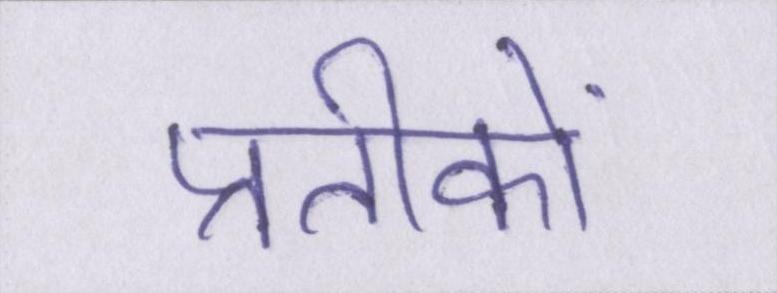 प्रतीकों